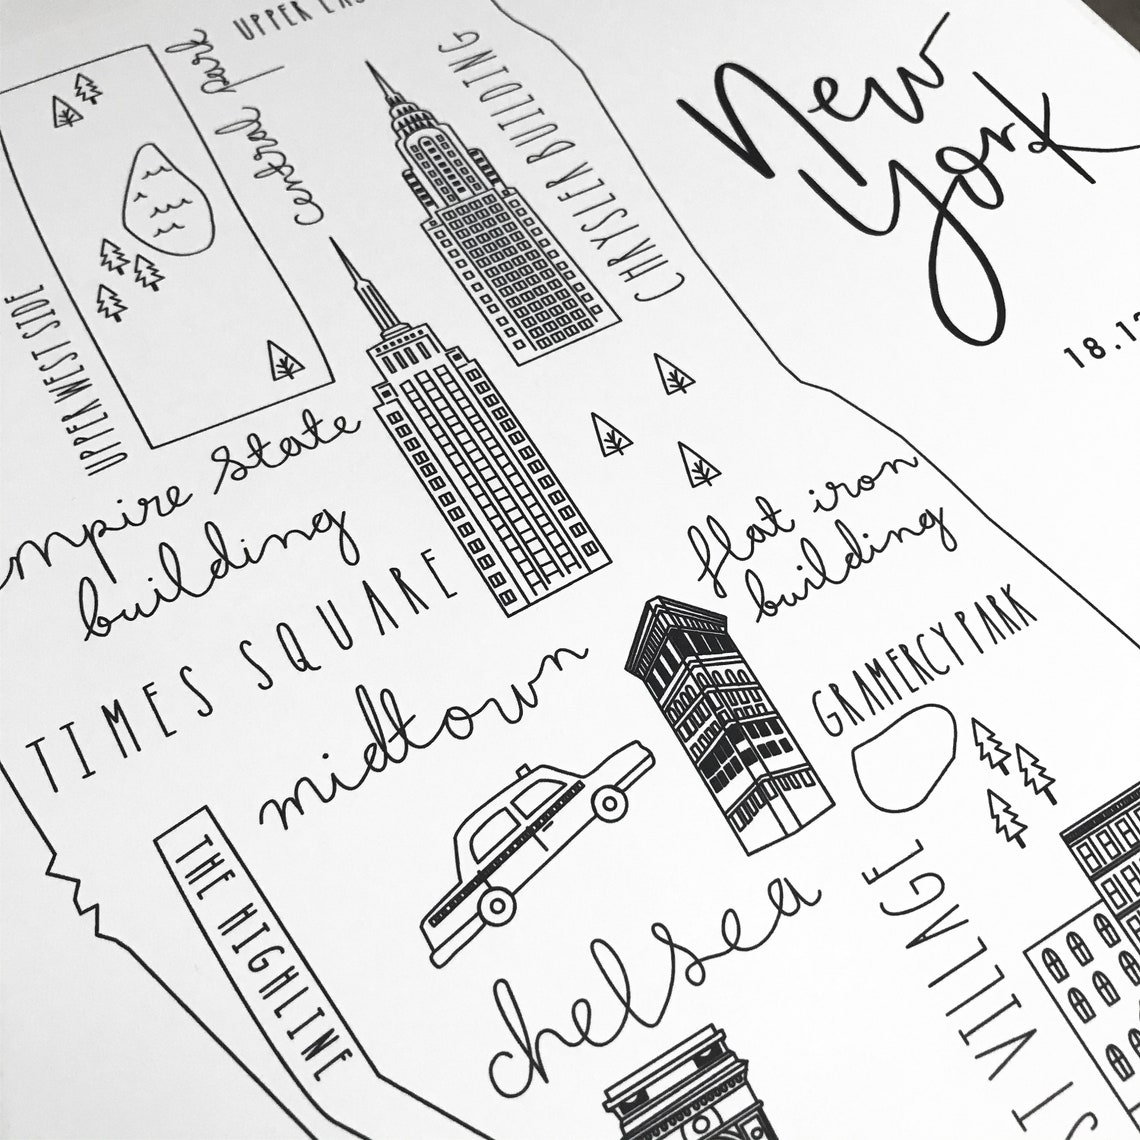 UPPER
Central Park
CHRYSLER BUILDING
New
York
UPPER WEST SIDE
mpire State
building
flat iron
building
TIMES SQUARE
midtown
GRAMERCY PARK
THE HIGHLINE
chelsea
VILLAGE
18.1